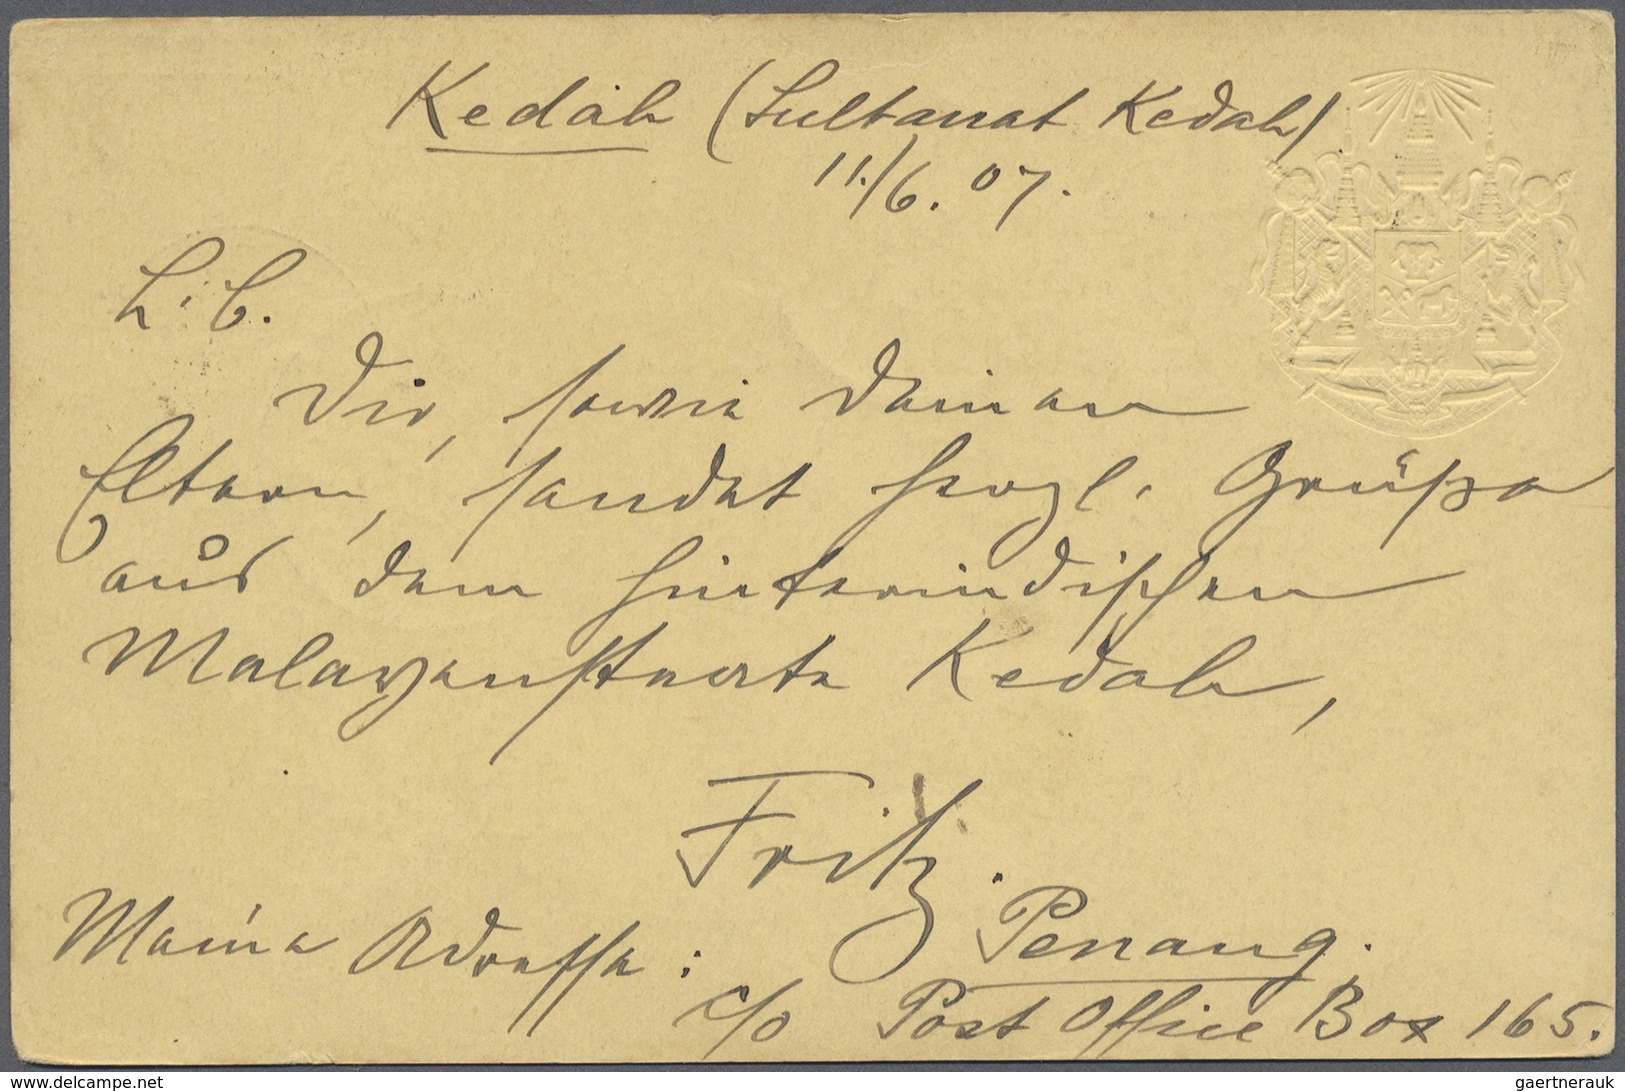 Kedah (Sultanat Kedah)
11./6. 07.
L. C.
Dir, sowie Deinen
Eltern, sendet herzl. Grüße
aus dem hinterindischen
Malayenstaate Kedah,
Fritz.
Meine Adresse: Penang.
c/o Post Office Box 165.
www.delcampe.net
gaertnerauk